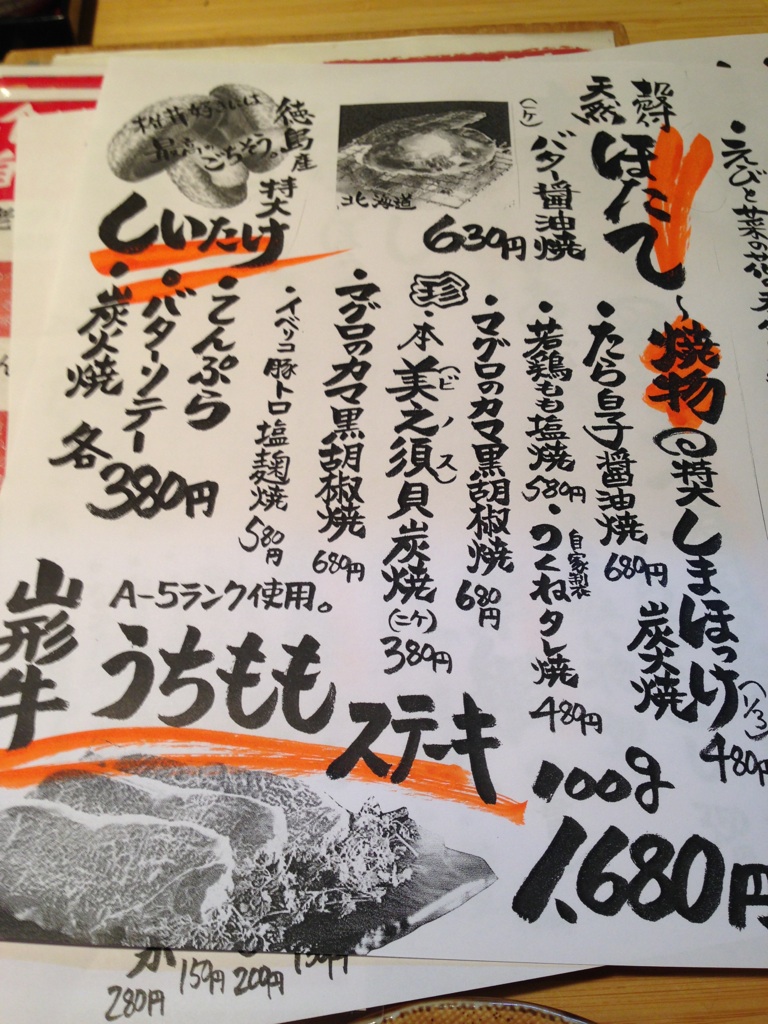 ・えびと菜の花の天
殻付
天然
ほたて
バター醤油焼
(二ケ)
630円
北海道
徳島産
特大
しいたけ
椎茸好きには
最高のごちそう。
・てんぷら
・バターソテー
・炭火焼
各380円
〜焼物
特大しまほっけ
(1/3)
炭火焼
480円
・たら白子醤油焼
680円
・若鶏もも塩焼
580円
・自家製
つくねタレ焼
480円
・マグロのカマ黒胡椒焼
680円
珍
・本美之須貝炭焼
(ビノス)
(二ケ)
380円
・マグロのカマ黒胡椒焼
680円
・イベリコ豚トロ塩麹焼
580円
山形牛
A-5ランク使用。
うちもも
ステーキ
100g
1,680円
280円
150円
200円